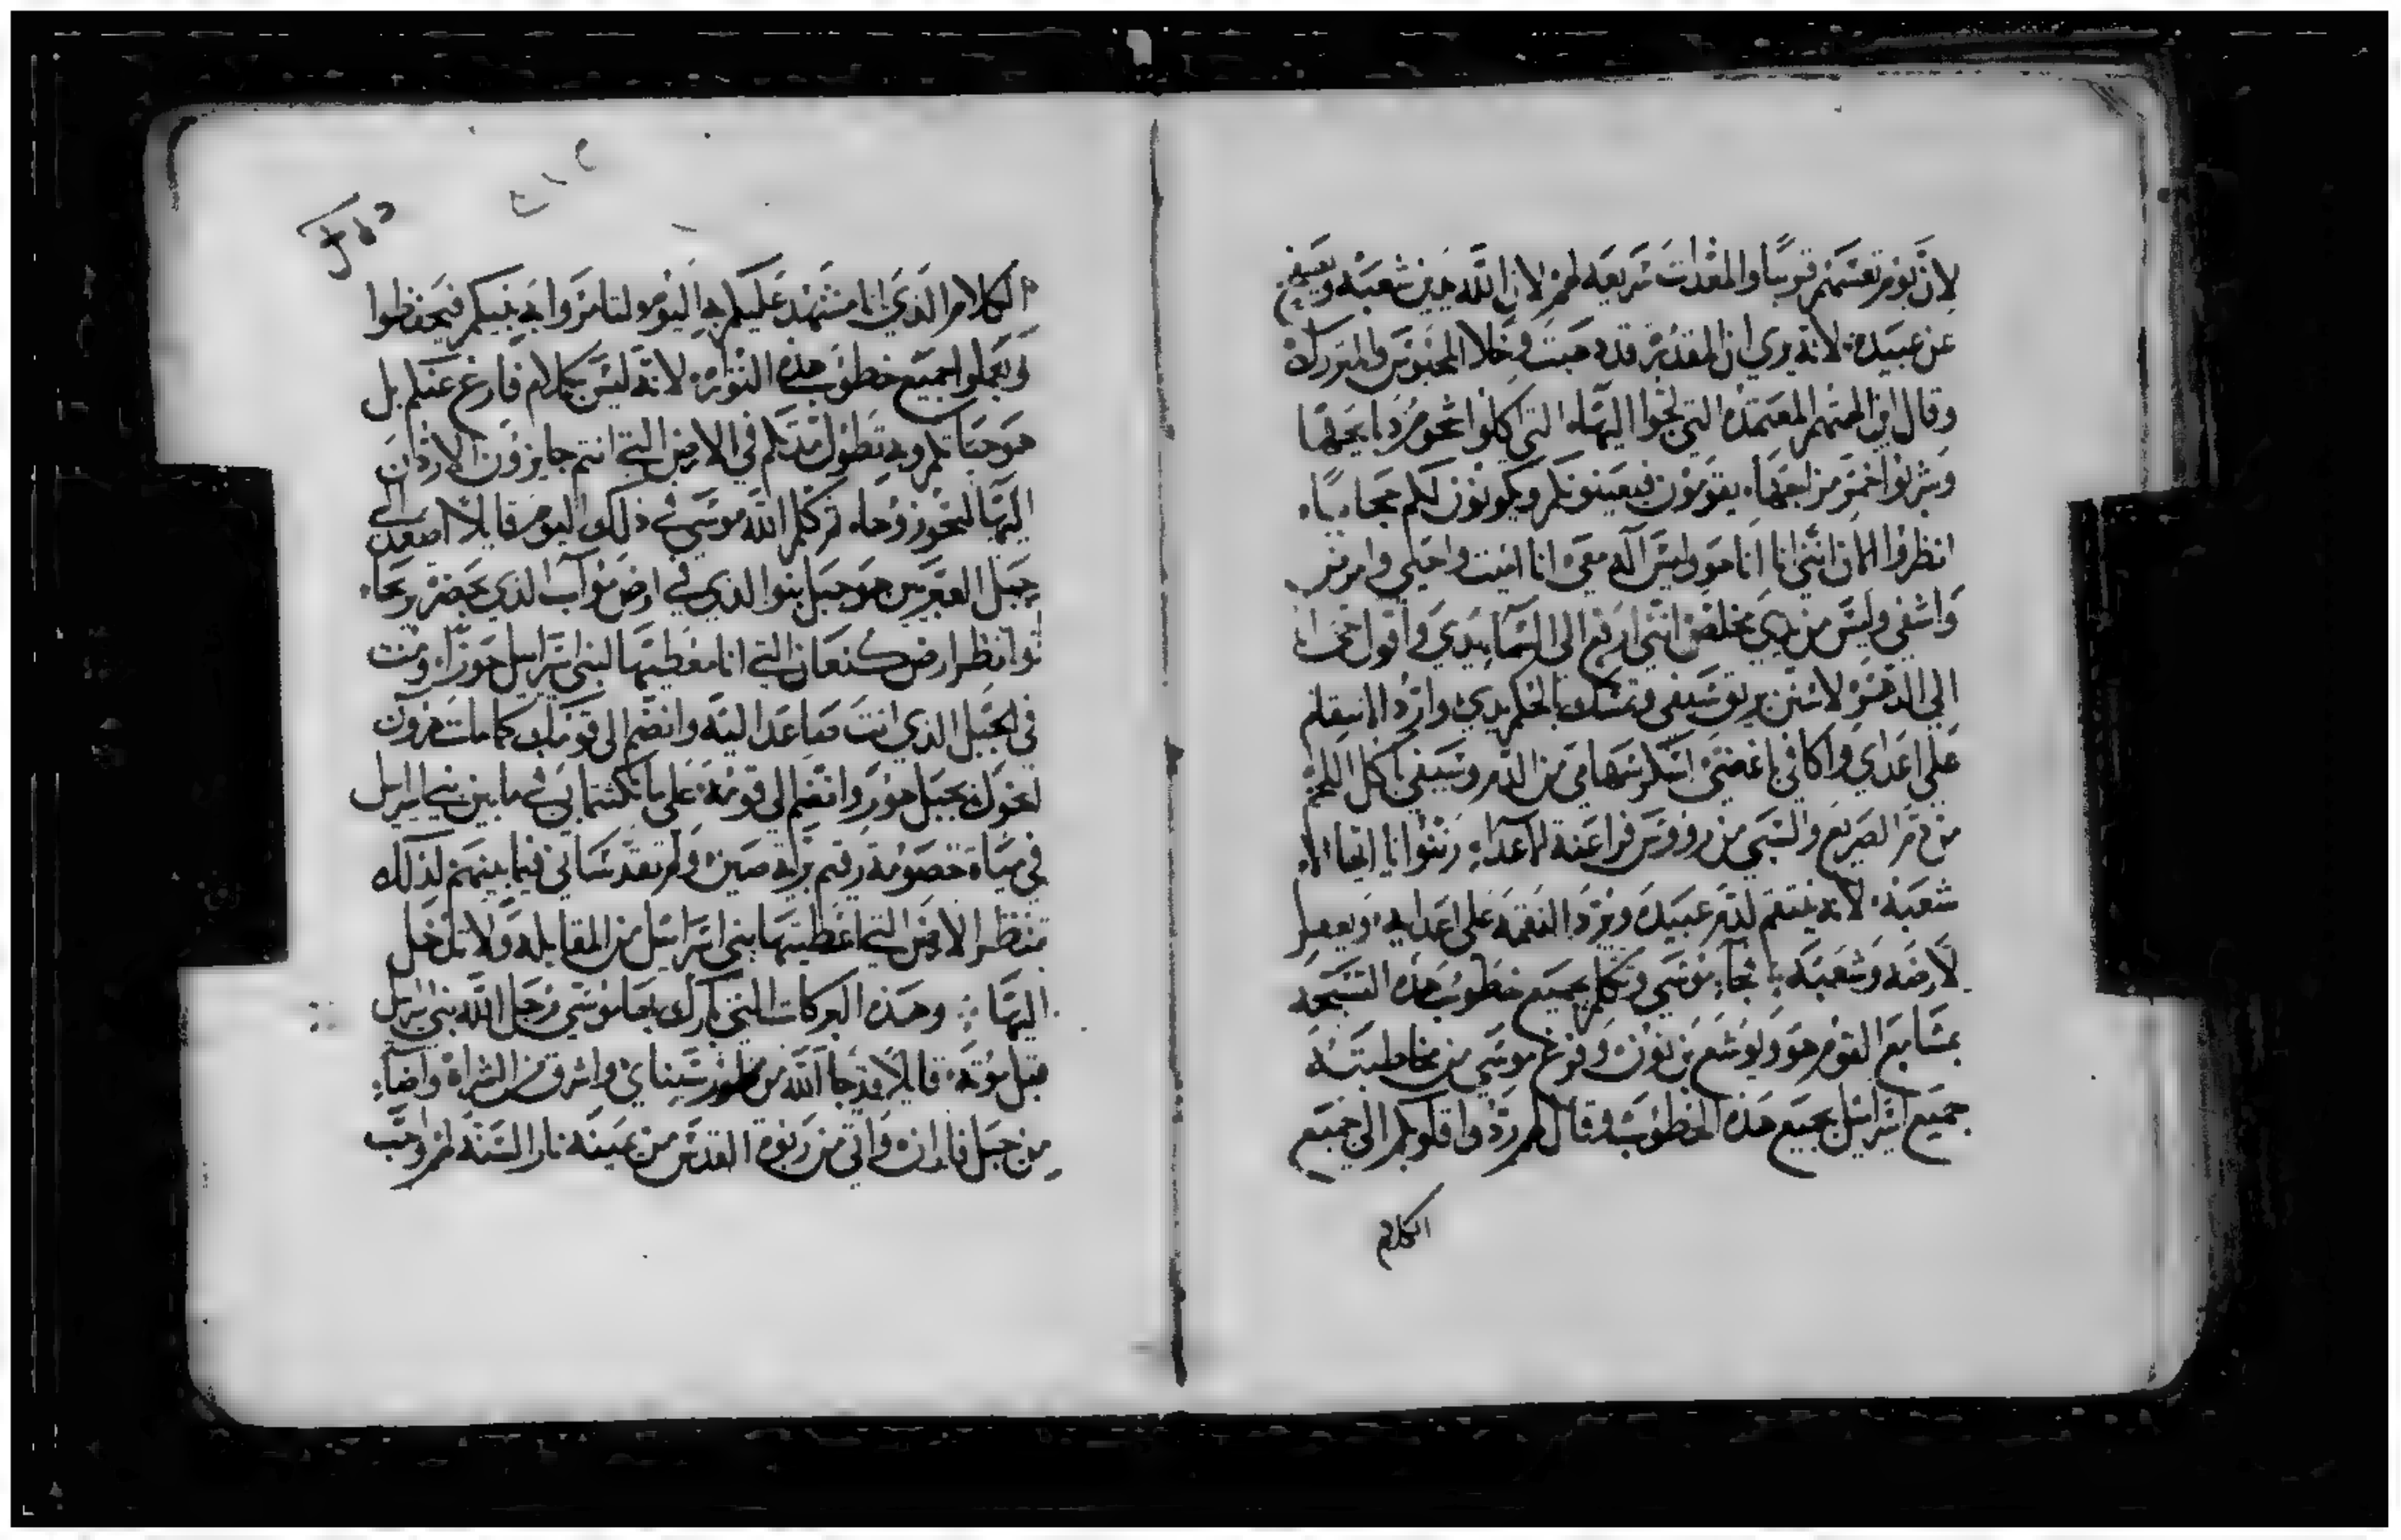 لان يوم تعسهم قريبا والمعدات شريعه لهم لان الله يدين شعبه ويصفح
عن عبيده لانه يري ان المقدره قد دهبت وخلا المحبوس والمتروك
وقال اين الهتهم المعتمده التي لجوا اليها التي اكلوا شحوم دبايحها
وشربوا خمر مزاجها يقومون فيعينونكم ويكونون لكم حجابا
انظروا الان انني انا انا هو وليس اله معي انا اميت واحيي وامرض
واشفي وليس من يدي مخلص انني ارفع الى السما يدي واقول حي انا
الي الدهر لاسنن بريق سيفي وتمسك بالحكم يدي وارد الانتقام
على اعداي واكافي باغضي اسكر سهامي من الدم وسيفي ياكل اللحم
من دم الصريع والسبي من رووس فراعنة الاعداء رنموا يا ايها الامم
شعبه لانه ينتقم لدم عبيده ويرد النقمه على اعدايه ويغفر
لارضه وشعبه فجاء موسي وتكلم بجميع خطوب هذه التسبحه
بمسامع القوم هو ويوشع بن نون وفرغ موسي من مخاطبته
جميع اسرايل بجميع هذه الخطوب وقال لهم ردوا قلوبكم الي جميع
الكلام
الكلام الذي انا مشتهد عليكم به اليوم ولتامروا به بنيكم فيحفظوا
ويعملوا جميع خطوب هذه التوراه لانه ليس بكلام فارغ عنكم بل
هو حياتكم وبه تطول مدتكم في الارض التي انتم جايزون الاردن
اليها لتحوزوها ثم كلم الله موسي في ذلك اليوم قايلا اصعد الي
جبل العبرين هو جبل نبوا الذي في ارض مواب الذي بحضرة ريحا
وانظر ارض كنعان التي انا معطيها لبني اسرايل حوزا ومت
في الجبل الذي انت صاعد اليه وانضم الى قومك كما مات هرون
اخوك بجبل هور وانضم الى قومه على ما نكثتما بي في ما بين بني اسرايل
في مياه خصومة رقيم برية صين ولم تقدساني فيما بينهم لذلك
تنظر الارض التي اعطيتها بني اسرايل من المقابله ولا تدخل
اليها وهذه البركات التي بارك بها موسي رجل الله بني اسرايل
قبل موته قايلا قد جا الله من طور سيناي واشرق من الشراة واضاء
من جبل فاران واتي من ربوة القدس من يمينه نار السنه لهم واحب